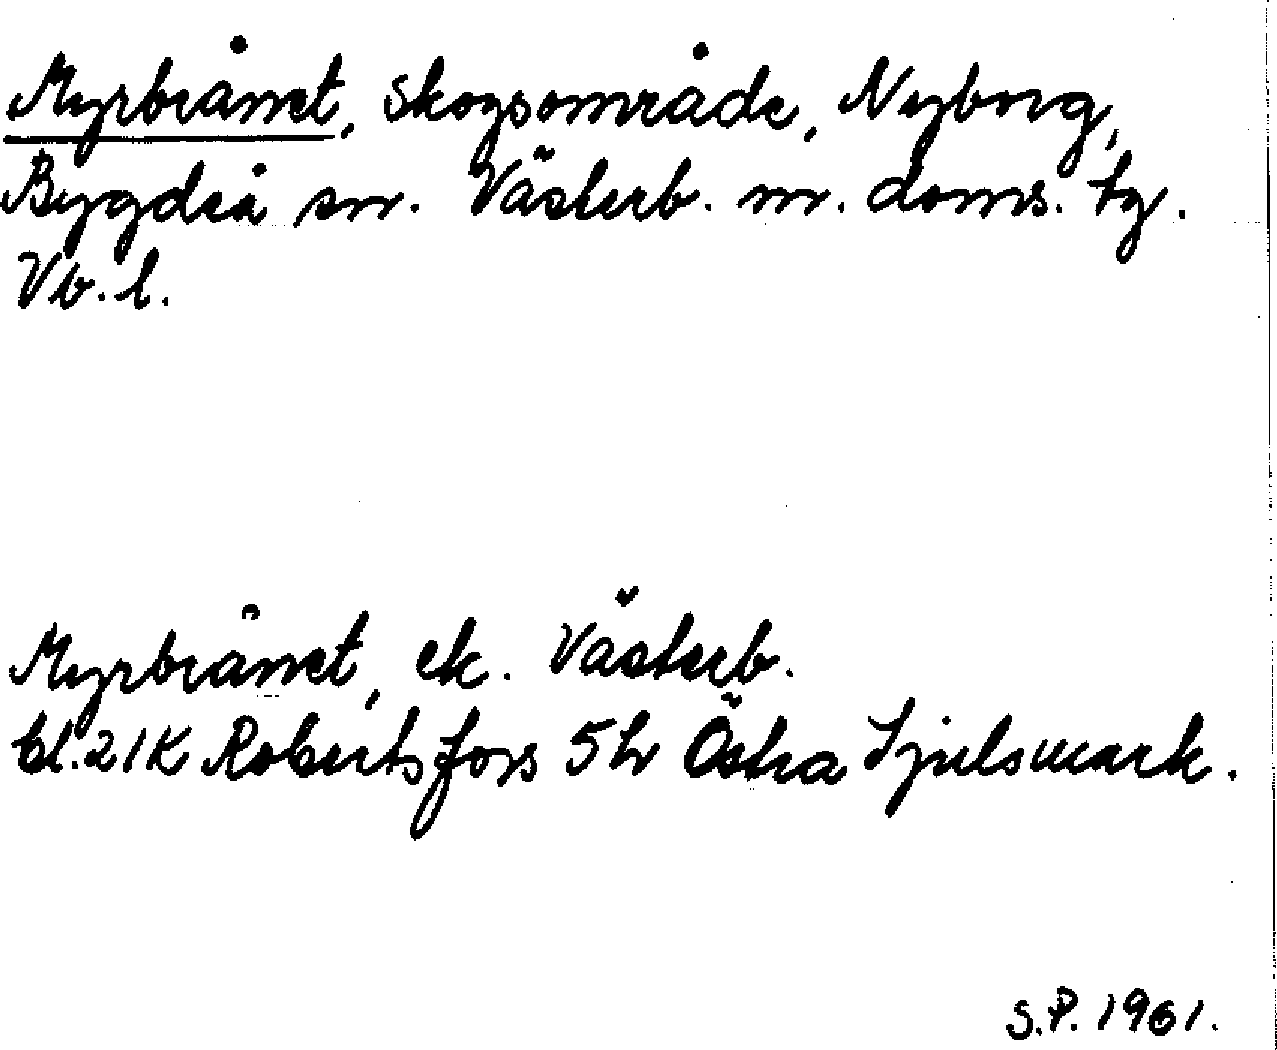 Myrbrånet, skogsområde, Nyborg,
Bygdeå sn. Västerb. m. doms. tg.
Vb. l.
Myrbrånet, ek. Västerb.
bl. 21K Robertsfors 5h Östra Sjulsmark.
S.P. 1961.